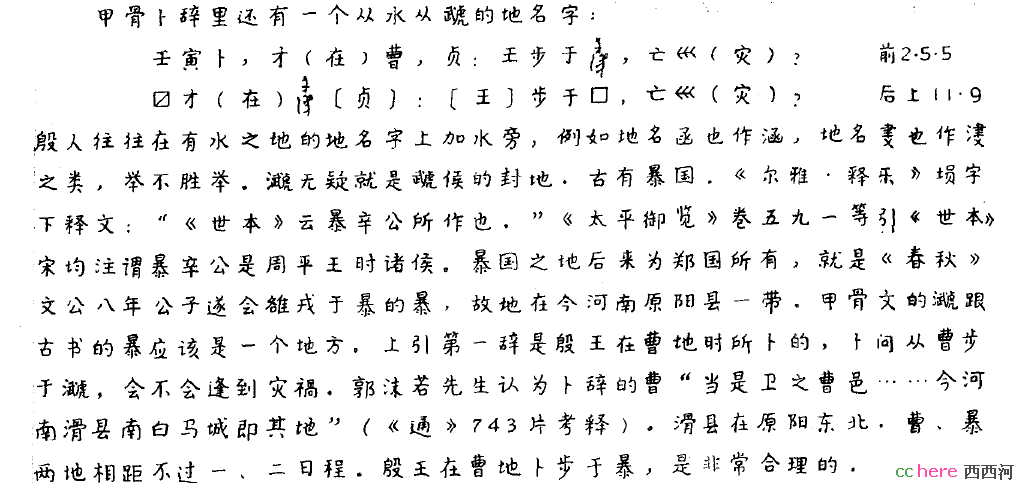 甲骨卜辞里还有一个从水从虣的地名字：
壬寅卜，才（在）曹，贞：王步于，亡巛（灾）？ 前2·5·5
☑才（在）〔贞〕：〔王〕步于□，亡巛（灾）？ 后上11·9
殷人往往在有水之地的地名字上加水旁，例如地名函也作涵，地名也作
之类，举不胜举。无疑就是虣侯的封地．古有暴国．《尔雅·释乐》埙字
下释文：“《世本》云暴辛公所作也．”《太平御览》卷五九一等引《世本》
宋均注谓暴辛公是周平王时诸侯。暴国之地后来为郑国所有，就是《春秋》
文公八年公子遂会雒戎于暴的暴，故地在今河南原阳县一带．甲骨文的跟
古书的暴应该是一个地方．上引第一辞是殷王在曹地时所卜的，卜问从曹步
于，会不会逢到灾祸。郭沫若先生认为卜辞的曹“当是卫之曹邑……今河
南滑县南白马城即其地”（《通》743片考释）。滑县在原阳东北．曹、暴
两地相距不过一、二日程。殷王在曹地卜步于暴，是非常合理的．
cchere 西西河